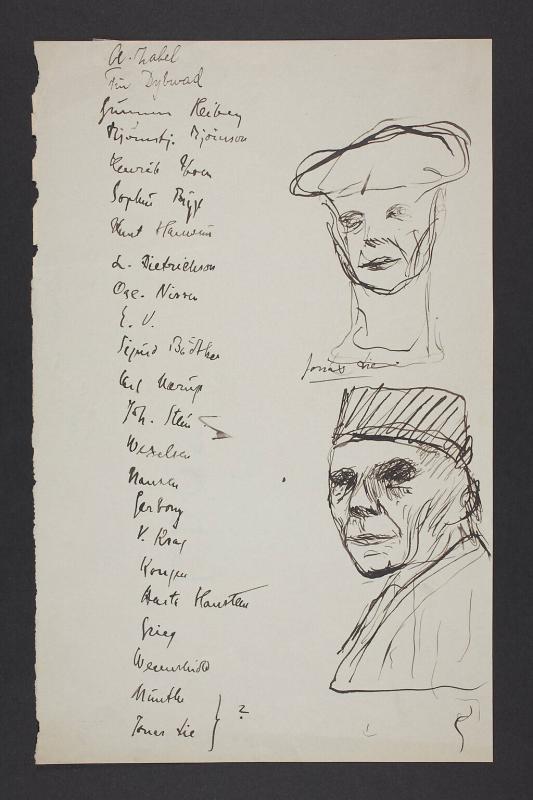 A. Zabel
Fru Dybwad
Gunnar Heiberg
Bjørnstj. Bjørnson
Henrik Ibsen
Sophus Bugge
Knut Hamsun
L. Dietrichson
Osc. Nissen
E. V.
Sigurd Bødtker
Carl Nærup
Joh. Stein
Wexelsen
Nansen
Garborg
V. Krag
Kongen
Hansteen
Grieg
Werenskiold
Munthe
Jonas Lie
?
Jonas Lie